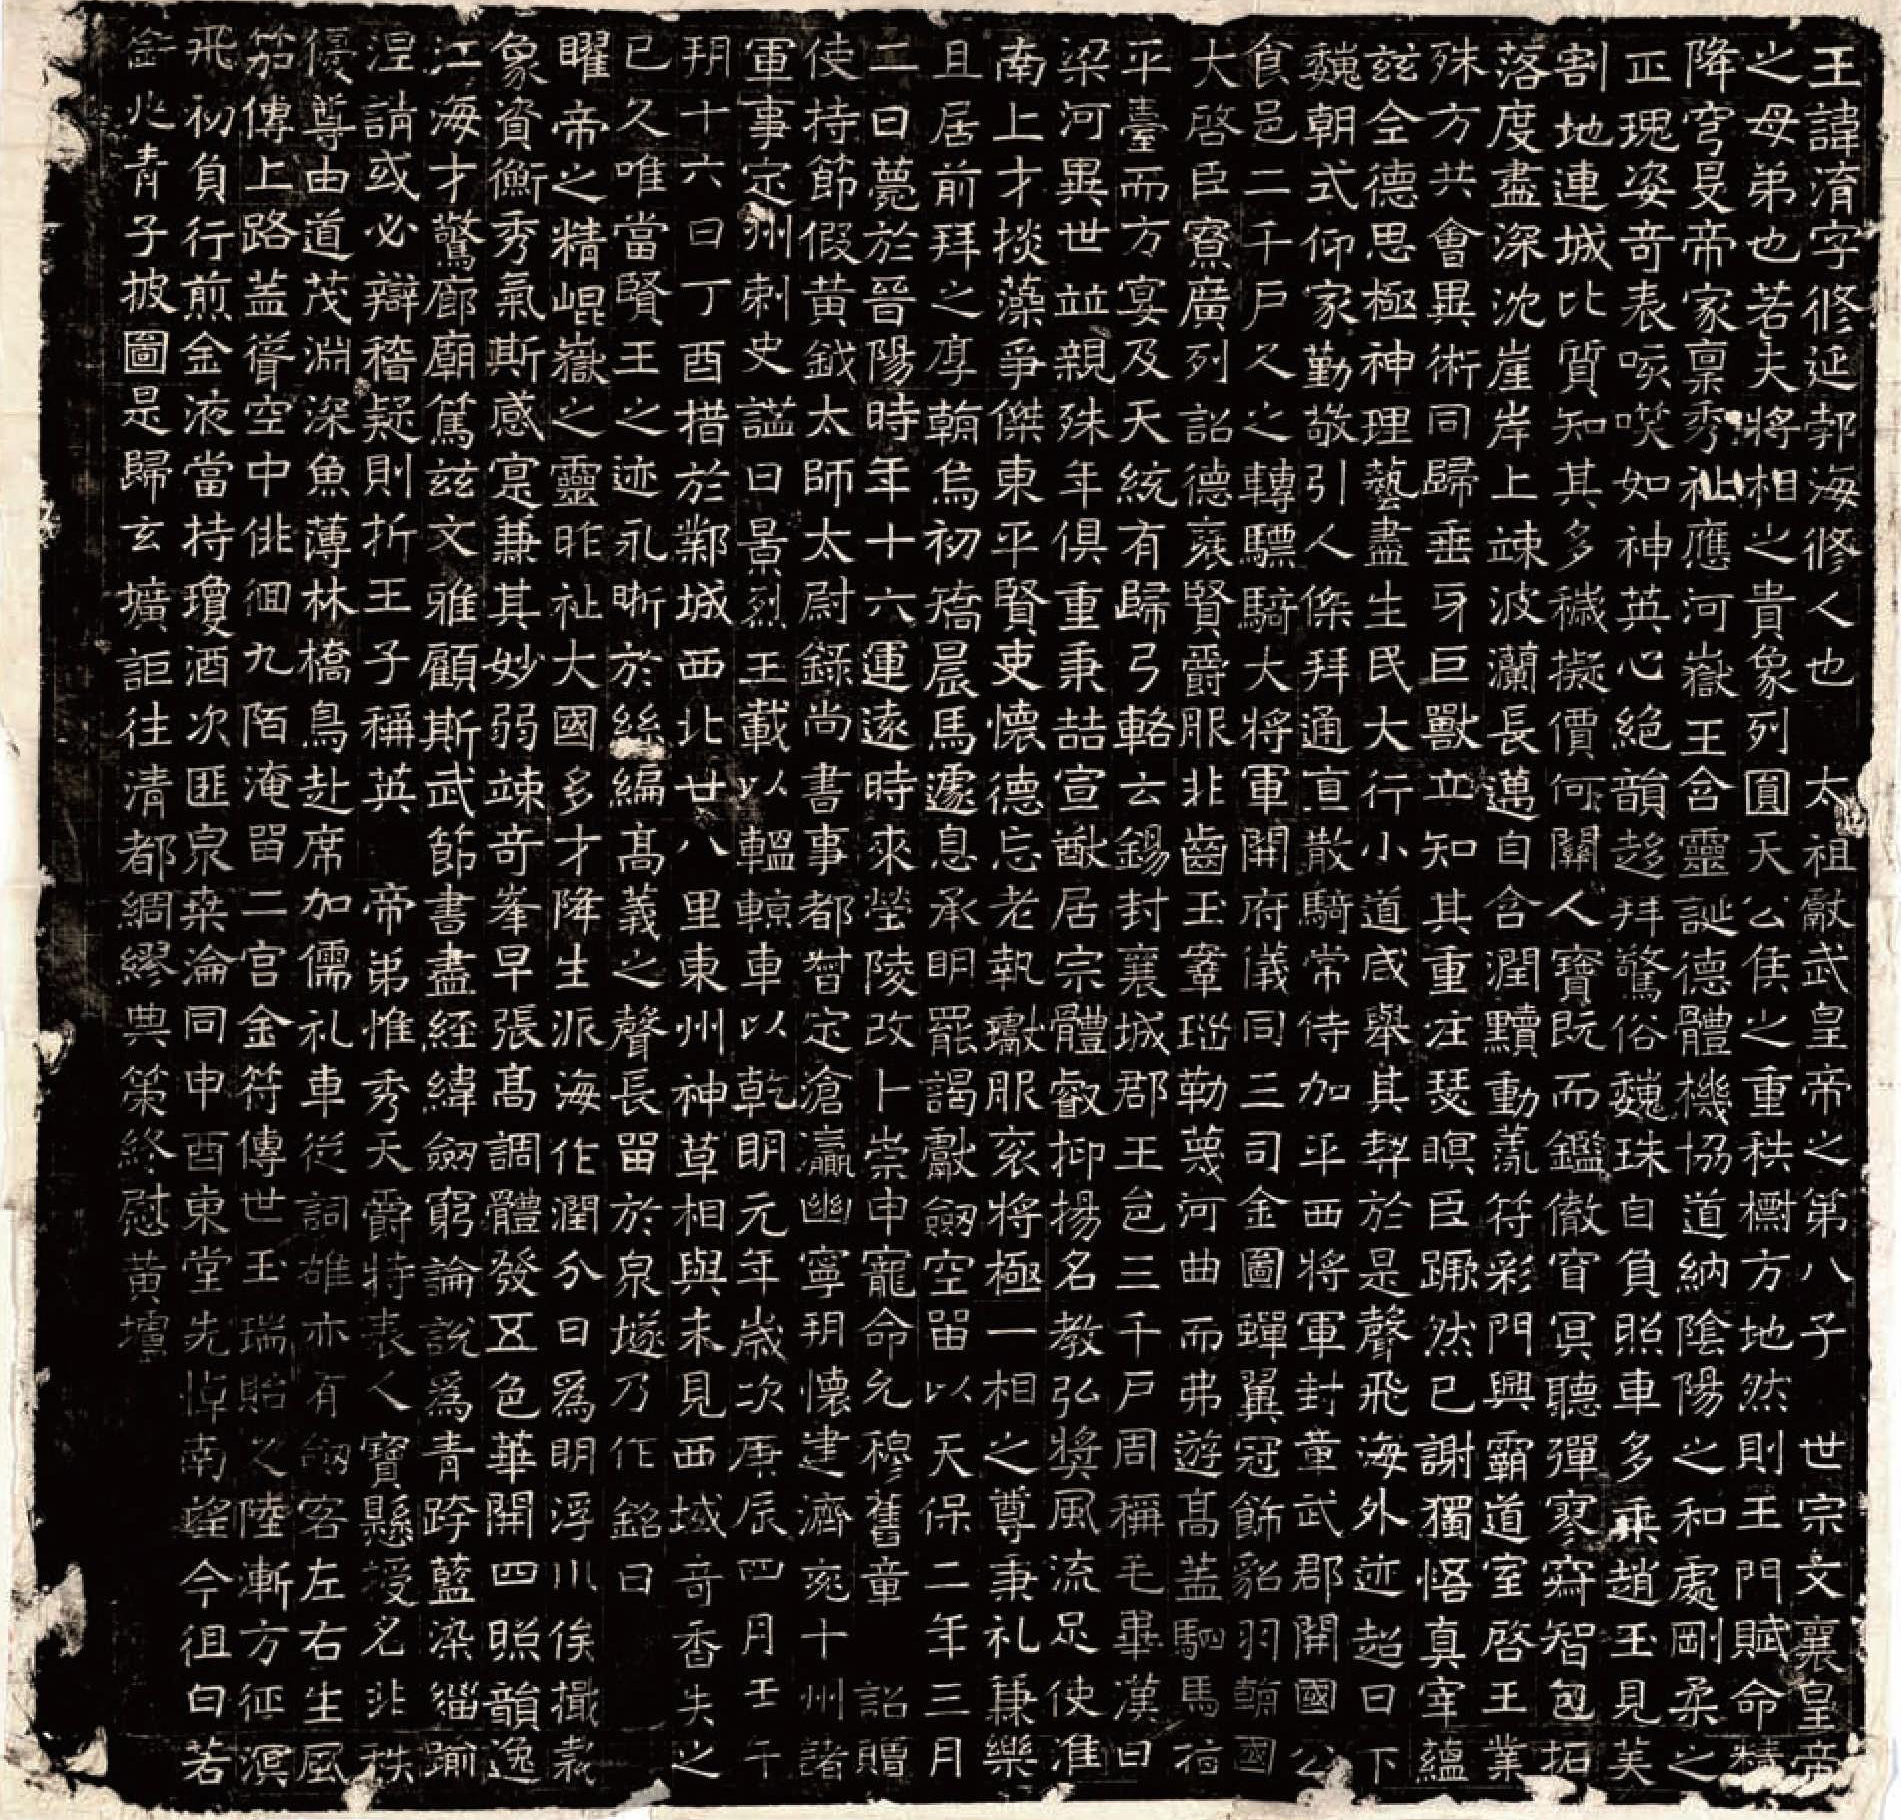 王諱淯字修延郣海修人也　太祖獻武皇帝之第八子　世宗文襄皇帝
之母弟也若夫將相之貴象列圓天公侯之重秩標方地然則王門賦命精
降穹旻帝家稟秀祉應河嶽王含靈誕德體機協道納陰陽之和處剛柔之
正瑰姿奇表咳唉如神英心絕韻趍拜驚俗魏珠自負照車多乘趙玉見美
割地連城比質知其多穢擬價何關人寶既而鑑徹窅冥聽彈寥寂智包拓
落度盡深沈崖岸上竦波瀾長邁自含潤黷動蕩符彩門興霸道室啓王業
殊方共會異術同歸垂牙巨獸立知其重注瑟瞑臣蹶然已謝獨悟真宰蘊
茲全德思極神理藝盡生民大行小道咸舉其契於是聲飛海外迹超日下
魏朝式仰家勤敬引人傑拜通直散騎常侍加平西將軍封章武郡開國公
食邑二千戶久之轉驃騎大將軍開府儀同三司金圖蟬翼冠飾貂羽翰國
大啓臣寮廣列詔德襃賢爵服非齒玉鞶瑵勒蔑河曲而弗遊高蓋駟馬指
平臺而方宴及天統有歸弓輅云錫封襄城郡王邑三千戶周稱毛畢漢曰
梁河異世竝親殊年俱重秉喆宣猷居宗體叡抑揚名教弘獎風流足使淮
南上才掞藻爭傑東平賢吏懷德忘老執瓛服衮將極一相之尊秉礼兼樂
且居前拜之厚翰烏初矯晨馬遽息承明罷謁獻劒空留以天保二年三月
二日薨於晉陽時年十六運遠時來塋陵改卜崇申寵命允穆舊章　詔贈
使持節假黃鉞太師太尉錄尚書事都督定滄瀛幽寧朔懷建濟兗十州諸
軍事定州刺史諡曰景烈王載以轀輬車以乾明元年歲次庚辰四月壬午
朔十六日丁酉措於鄴城西北廿八里東州神草相與未見西域奇香失之
已久唯當賢王之迹永晰於絲編高義之聲長留於泉墜乃作銘曰
曜帝之精崐嶽之靈昨祉大國多才降生派海作潤分日爲明浮川俟檝裁
象資衡秀氣斯感寔兼其妙弱竦奇峯早張高調體發五色華開四照韻逸
江海才驚廊廟篤茲文雅顧斯武節書盡經緯劒窮論說爲青跨藍染緇踰
涅請或必辯稽疑則折王子稱英　帝弟惟秀天爵特表人寶懸授名非秩
優尊由道茂淵深魚薄林橋鳥赴席加儒礼車從詞雄亦有劒客左右生風
笳傳上路蓋聳空中俳徊九陌淹留二宮金符傳世玉瑞貽久陸漸方征溟
飛初負行煎金液當持瓊酒次匪泉桒淪同申酉東堂先悼南望今徂白若
銜兆青子披圖是歸玄壙詎往清都綢繆典策終慰黃壚